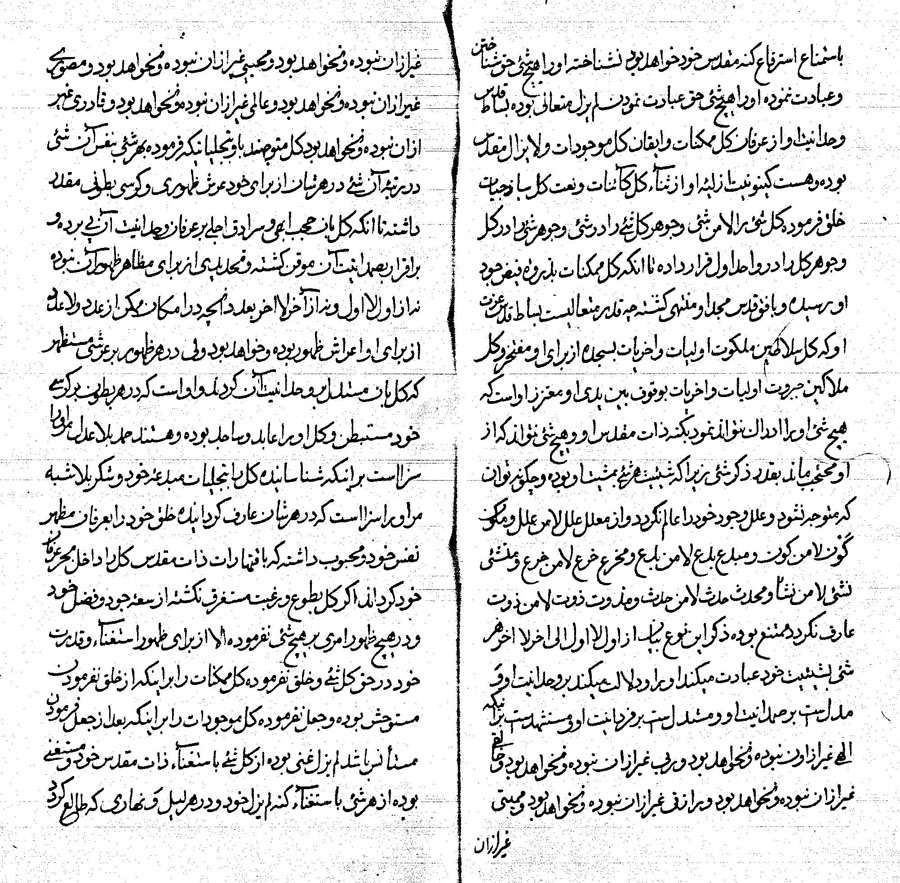 باستمناع استرفاع کنه مقدس خود خواهد بود نشناخته اورا هیچ شئ حق شناختن
و عبادت ننموده اورا هیچ شئ حق عبادت نمودن لم یزل متعالی بوده بساط قدس
وحدانیت او از عرفان کل ممکنات و ایقان کل موجودات و لا یزال مقدس
بوده و هست کینونیت ازلیه او از ثنآء کل کائنات و نعت کل ساذجیات
خلق فرموده کل شئ را لا من شئ و جوهر کل شئ را در شئ و جوهر شئ را در کل
و جوهر کل را در واحد اول قرار داده تا آنکه کل ممکنات بذروه فیض جود
او رسیده و بافق قدس مجد او منتهی گشته چه قدر متعالیست بساط قدس عزت
او که کل سلاطین ملکوت اولیات و اخریات بسجده از برای او مفتخر و کل
ملاکین جبروت اولیات و اخریات بوقوف بین یدی او معزز او است که
هیچ شئ او را ادراک نتواند نمود بکنه ذات مقدس او و هیچ شئ نتواند که از
او محتجب ماند بقدر ذکر شئ زیرا که شیئیت هر شئ بمشیت او بوده و چگونه توان
که متوجه نشود و علل وجود خود را عالم نگردد و از معلل علل لا من علل و مکون
کون لا من کون و مبدع بدع لا من بدع و مخترع خرع لا من خرع و منشئ
نشئ لا من نشأ و محدث حدث لا من حدث و مذوت ذوت لا من ذوت
عارف نگردد ممتنع بوده ذکر این نوع بیان از اول لا اول الی اخر لا اخر هر
شئ بشیئیت خود عبادت میکند او را و دلالت میکند بر وحدانیت او و
مدل است بر صمدانیت او و مستدل است بر فردانیت او و مستشهد است براینکه
الهی غیر از او نبوده و نخواهد بود و ربی غیر از ان نبوده و نخواهد بود و خالقی
غیر از ان نبوده و نخواهد بود و رازقی غیر از ان نبوده و نخواهد بود و ممیتی
غیر از ان
غیر از ان نبوده و نخواهد بود و محییی غیر از ان نبوده و نخواهد بود و مصوری
غیر از ان نبوده و نخواهد بود و عالمی غیر از ان نبوده و نخواهد بود و قادری غیر
از ان نبوده و نخواهد بود کل متوجهند باو بتجلیاتیکه فرموده بهر شئ بنفس آن شئ
در رتبه آن شئ و در هر شان از برای خود عرش ظهوری و کرسی بطونی مقدر
داشته تا انکه کل بان حجب ابهی و سرادق اجلی بر عرفان وحدانیت آن پی برده و
براقرار بصمدانیت آن موقن گشته و تحدیدی از برای مظاهر ظهور آن نبوده
نه از اول لا اول و نه از آخر لا اخر بعدد آنچه در امکان ممکن از عدد و لا عدد
از برای او اعراش ظهور بوده و خواهد بود ولی در هر ظهور بر عرشی مستظهر
که کل بان مستدل بر وحدانیت آن گردند و او است که در هر بطون بر کرسی
خود مستبطن و کل او را عابد و ساجد بوده و هستند حمد بلا عدل او را
سزا است بر اینکه شناسانیده کل را بتجلیات مبدعه خود و شکر بلا شبه
مر او را سزا است که در هر شان عارف گردانیده خلق خود را بعرفان مظهر
نفس خود و محبوب داشته که باقتهارات ذات مقدس کل را داخل بحر عرفان
خود گرداند اگر کل بطوع و رغبت مستغرق نگشته از سعه جود و فضل خود
و در هیچ ظهور امری بر هیچ شئ نفرموده الا از برای ظهور استغنآء و قدرت
خود در حق کل شئ و خلق نفرموده کل ممکنات را بر اینکه از خلق نفرمودن
مستوحش بوده و جعل نفرموده کل موجودات را بر اینکه بعد از جعل فرمودن
مستأنس باشد لم یزل غنی بوده از کل شئ باستغنآء ذات مقدس خود و مستغنی
بوده از هر شئ باستغنآء کنه لم یزل خود و در هر لیل و نهاری که طالع گردد